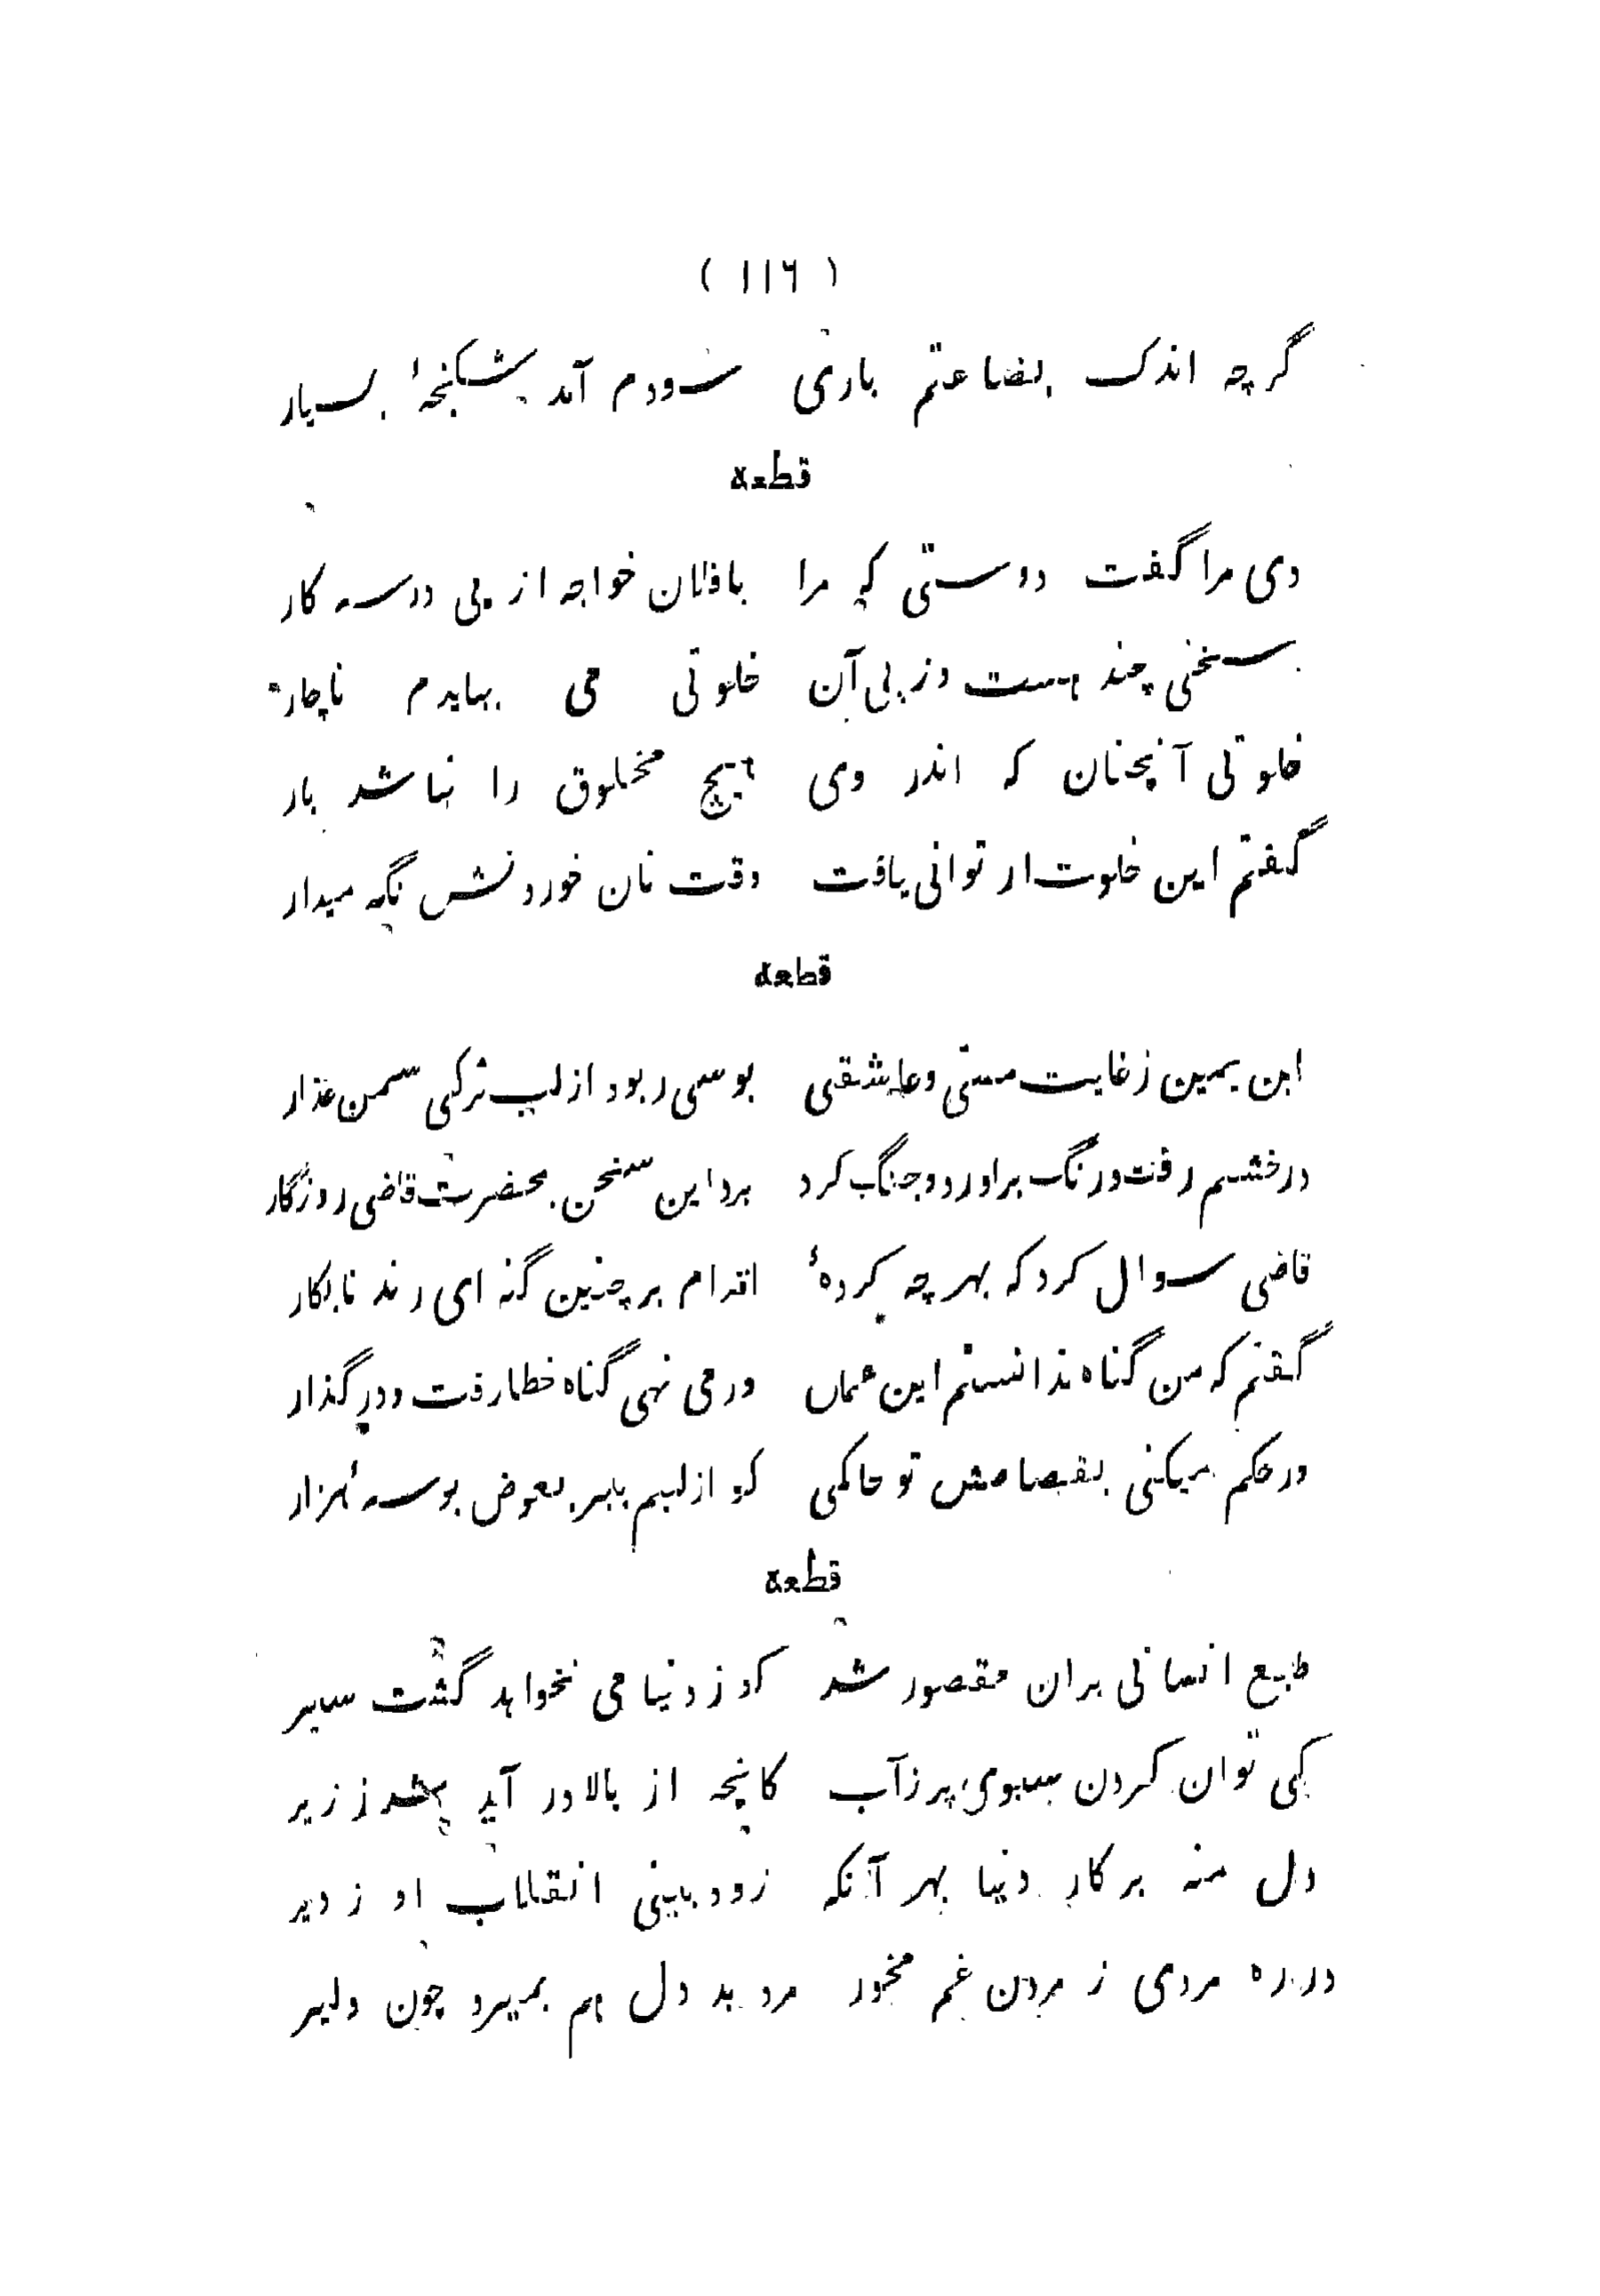 ( ۱۱٦ )
گرچه اندک بضاعتم باری سودم آمد شکنجهٔ بسیار
قطعه
دی مرا گفت دوستی که مرا بافلان خواجه از پی دوسه کار
سخنی چند هست وز پی آن خلوتی می ببایدم ناچار
خلوتی آنچنان که اندر وی هیچ مخلوق را نباشد بار
گفتم این خلوت ار توانی یافت وقت نان خوردنش نگه میدار
قطعه
ابن یمین زغایت مستی وعاشقی بوسی ربود از لب ترکی سمن عذار
درخشم رفت ورنگ براورد وجنگ کرد برد این سخن بحضرت قاضی روزگار
قاضی سوال کرد که بهر چه کردهٔ اقدام بر چنین گنه ای رند نابکار
گفتم که من گناه ندانستم این عمل ور می نهی گناه خطا رفت ودر گذار
ور حکم میکنی بقصاصش تو حاکمی کو از لبم ببر بعوض بوسهٔ هزار
قطعه
طبع انسانی بران مقصور شد کو ز دنیا می نخواهد گشت سیر
کی توان کردن سبوی پر زآب کانچه از بالا در آید شد ز زیر
دل منه بر کار دنیا بهر آنکه زود بینی انقلاب او ز دیر
در ره مردی ز مردن غم مخور مرد بد دل هم بمیرد چون دلیر